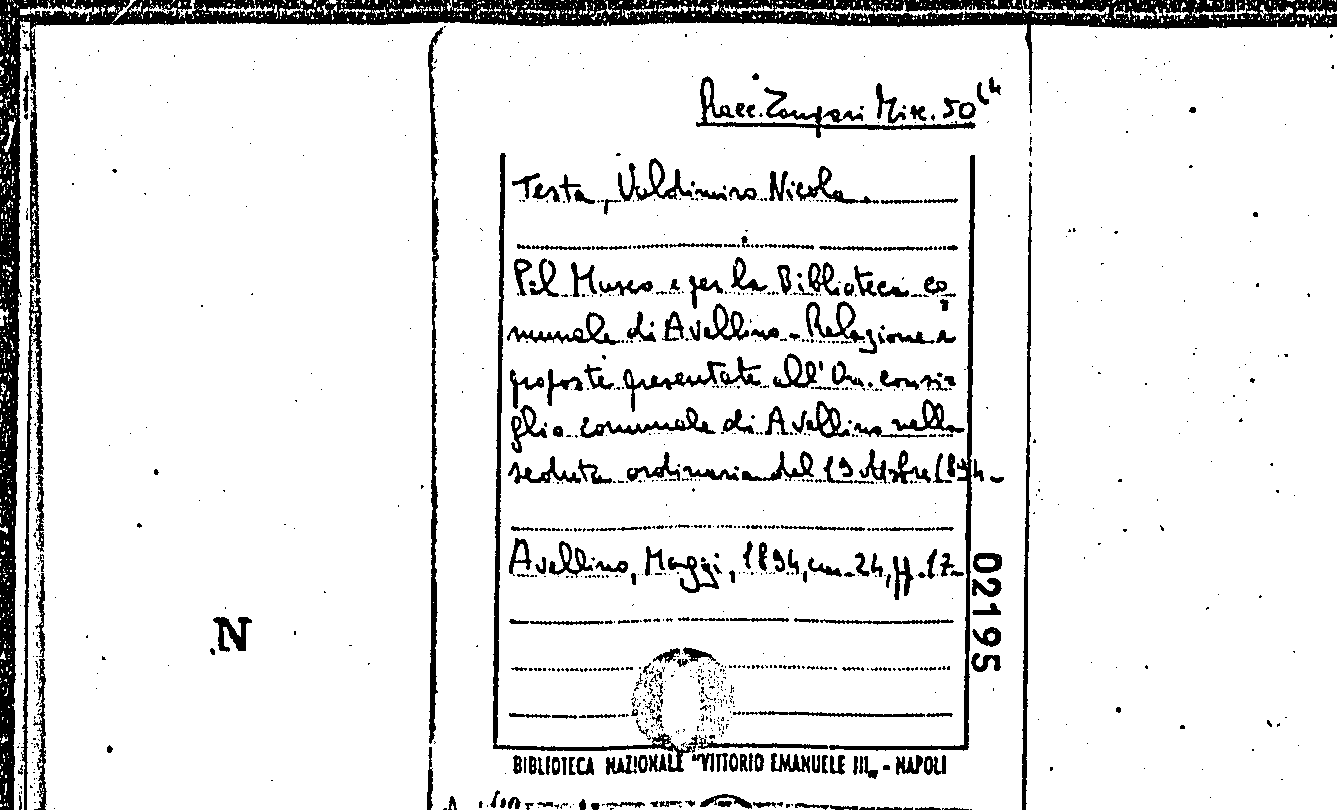 Racc. Zangari Misc. 50
Testa, Valdimiro Nicola.
Pel Museo e per la Biblioteca co=
munale di Avellino - Relazione e
proposte presentate all'On. consi=
glio comunale di Avellino nella
seduta ordinaria del 19 Ottobre 1894 -
Avellino, Maggi, 1894, cm. 24, pp. 17 -
02195
N
BIBLIOTECA NAZIONALE "VITTORIO EMANUELE III„ - NAPOLI